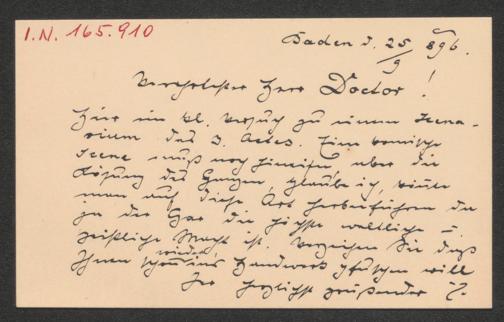 I.N. 165.910
Baden d. 25/9 896.
Verehrtester Herr Doctor!
Hier im kl. Versuch zu einem Scena-
rium des 3. Actes. Eine komische
Scene muß noch hineinfn, aber die
Lösung des Ganzen, glaube ich, müßte
man auf diese Art herbeiführen da
ja der Gar die höchste weltliche u.
geistliche Macht ist. Verzeihen Sie daß
Ihnen schon wieder ins Handwerk pfuschen will
Ihr herzlichst grüßender